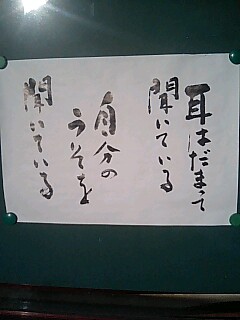 耳はだまって
聞いている
自分の
うそを
聞いている